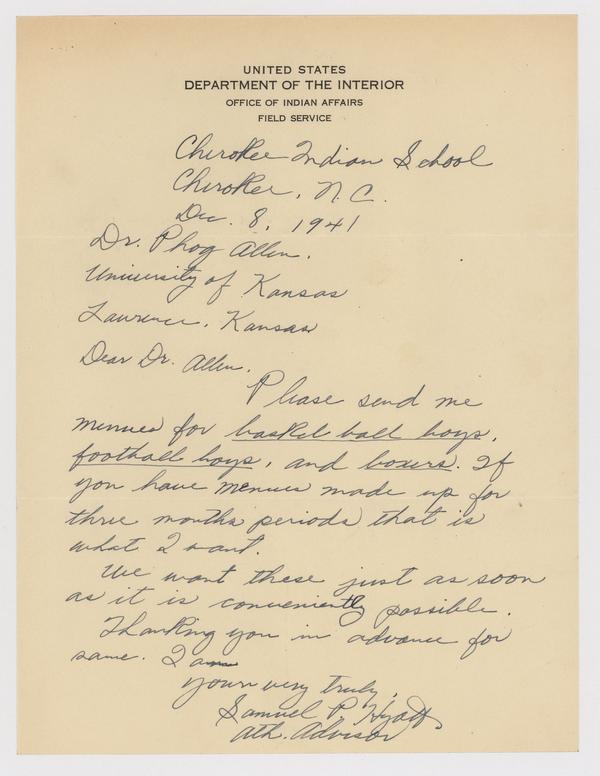 UNITED STATES
DEPARTMENT OF THE INTERIOR
OFFICE OF INDIAN AFFAIRS
FIELD SERVICE
Cherokee Indian School
Cherokee, N.C.
Dec. 8, 1941
Dr. Phog Allen.
University of Kansas
Lawrence, Kansas
Dear Dr. Allen.
Please send me
menues for basket ball boys,
football boys, and boxers. If
you have menues made up for
three months periods that is
what I want.
We want these just as soon
as it is conveniently possible.
Thanking you in advance for
same. I am
yours very truly,
Samuel P. Hyatt
Ath. Advisor